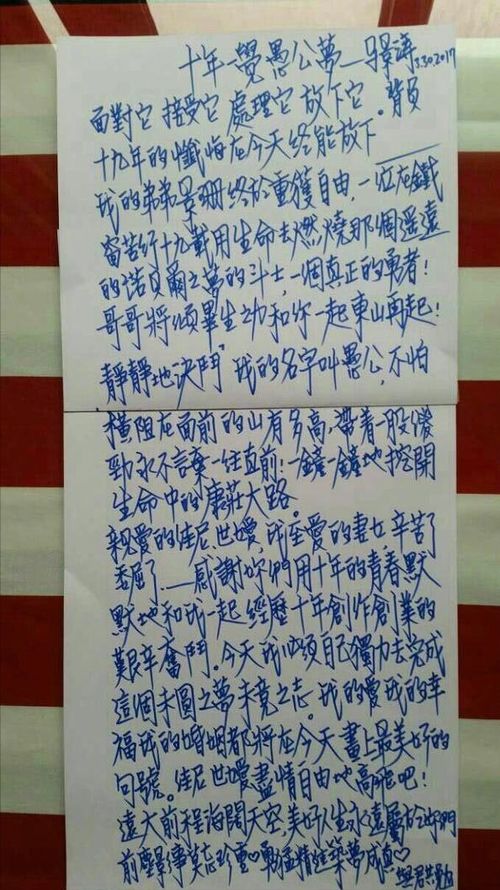 十年一覺愚公夢—馬景濤 3.30.2017
面對它 接受它 處理它 放下它。背負
十九年的懺悔在今天終能放下
我的弟弟景珊終於重獲自由，一位在鐵
窗苦行十九載用生命去燃燒那個遙遠
的諾貝爾之夢的斗士，一個真正的勇者！
哥哥將傾畢生之力和你一起東山再起！
靜靜地決鬥 我的名字叫愚公，不怕
橫阻在面前的山有多高，帶着一股傻
勁永不言棄一往直前！一鏟一鏟地挖開
生命中的康莊大路。
親愛的佳尼、世嬡，我至愛的妻女，辛苦了
委屈了——感謝妳們用十年的青春默
默地和我一起 經歷十年創作創業的
艱辛奮鬥。今天我必須自己獨力去完成
這個未圓之夢 未竟之志。我的愛我的幸
福我的婚姻都將在今天 畫上最美好的
句號。佳尼 世嬡 盡情自由地高飛吧！
遠大前程海闊天空，美好人生永遠屬於妳們
前塵景事莫忘珍重♡勇猛精進築夢成真♡